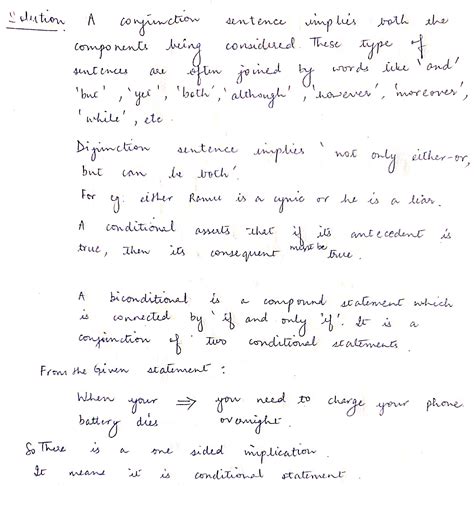 Solution. A conjunction sentence implies both the
components being considered. These type of
sentences are often joined by words like 'and'
'but', 'yet', 'both', 'although', 'however', 'moreover',
'while', etc
Disjunction sentence implies 'not only either-or,
but can be both'.
For eg. either Ramu is a cynic or he is a liar.
A conditional asserts that if its antecedent is
true, then its consequent must be true.
A biconditional is a compound statement which
is connected by 'if and only if'. It is a
conjunction of two conditional statements.
From the Given statement :
When your ⇒ you need to charge your phone
battery dies overnight.
So There is a one sided implication.
It means it is conditional statement.